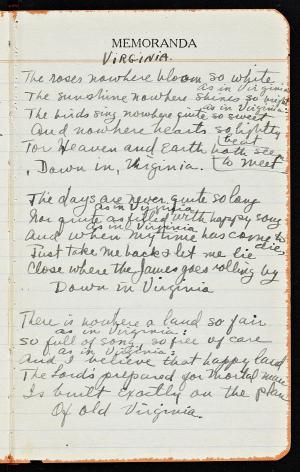 MEMORANDA
VIRGINIA.
The roses nowhere bloom so white
as in Virginia
The sunshine nowhere shines so bright
as in Virginia.
The birds sing nowhere quite so sweet
And nowhere hearts so lightly
beat
For Heaven and Earth both seem
to meet
Down in, Virginia.
The days are never quite so long
as in Virginia
Nor quite as filled with happy song
as in Virginia
And when my time has come to
die
Just take me back & let me lie
Close where the James goes rolling by
Down in Virginia
There is nowhere a land so fair
as in Virginia.
So full of song, so free of care
as in Virginia.
And I believe that happy land
The Lord's prepared for mortal man
Is built exactly on the plan
Of old Virginia.